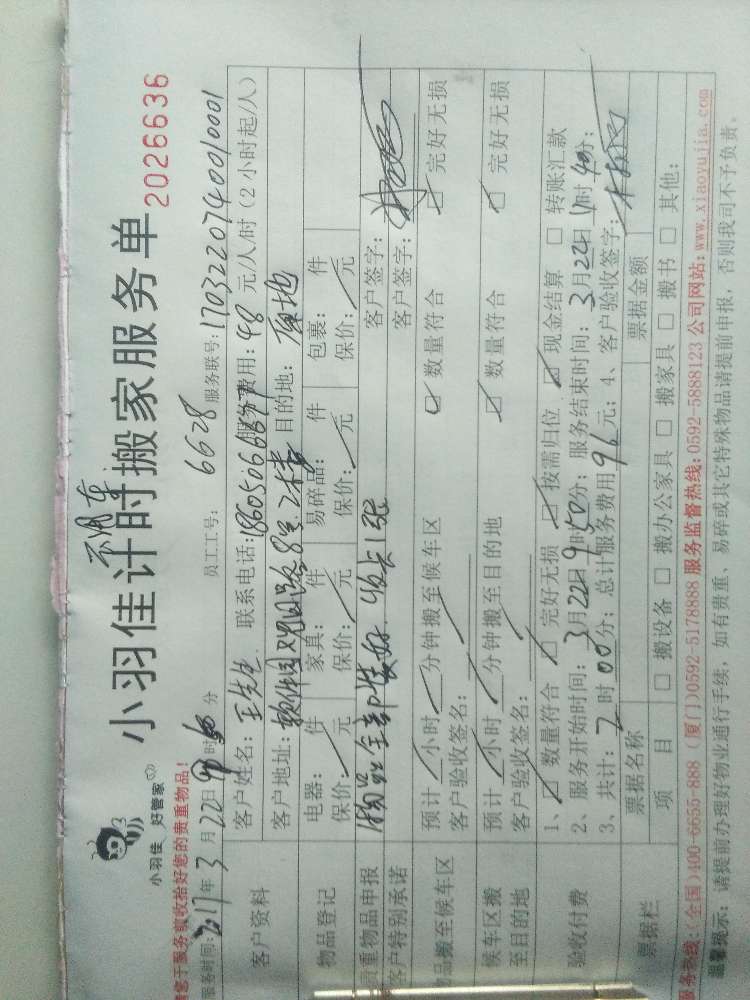 小羽佳 好管家
小羽佳计时搬家服务单 2026636
请您于服务前收拾好您的贵重物品!
服务时间:2017年3月22日 时 分 员工工号: 6628 服务联号:170322074001 0001
客户资料 客户姓名: 王先生 联系电话: 服务费用:48元/人/时(2小时起/人)
客户地址: 软件园观日路8号 2楼 目的地: 原地
物品登记 电器: 件 家具: 件 易碎品: 件 包裹: 件
保价: 元 保价: 元 保价: 元 保价: 元
贵重物品申报 物品全部装好 客户签字:
客户特别承诺 客户签字:
物品搬至候车区 预计 小时 分钟搬至候车区 数量符合 完好无损
客户验收签名:
候车区搬至目的地 预计 小时 分钟搬至目的地 数量符合 完好无损
客户验收签名:
验收付费 1、 数量符合 完好无损 按需归位 现金结算 转账汇款
2、服务开始时间: 3月22日9时50分; 服务结束时间: 3月22日 时 分;
3、共计: 2时00分; 总计服务费用96元; 4、客户验收签字:
票据栏 票据名称 票据金额
项目 搬设备 搬办公家具 搬家具 搬书 其他:
服务热线:(全国)400-6655-888 (厦门)0592-5178888 服务监督热线:0592-5888123 公司网站:www.xiaoyujia.com
温馨提示: 请提前办理好物业通行手续,如有贵重、易碎或其它特殊物品请提前申报,否则我司不予负责。